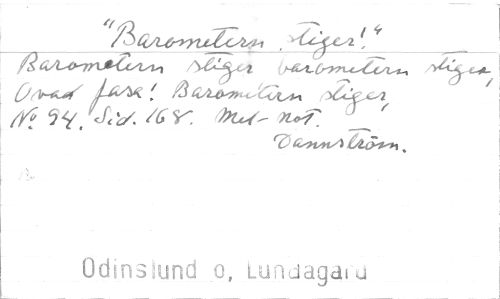 "Barometern stiger!"
Barometern stiger barometern stiger,
Ovad fasa! Barometern stiger,
No 94. Sid. 168. Mel- not.
Dannström.
Odinslund o, Lundagård